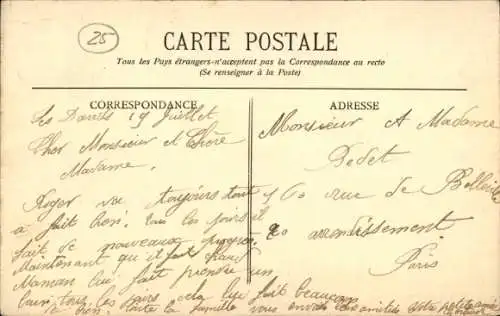 25
CARTE POSTALE
Tous les Pays étrangers n'acceptent pas la Correspondance au recto
(Se renseigner à la Poste)
CORRESPONDANCE
ADRESSE
19 Juillet
Cher Monsieur et Chère
Madame,
Roger va toujours tout
à fait bien. Tous les jours il
fait de nouveaux progrès.
Maintenant qu'il fait chaud
Maman lui fait prendre un
bain tous les jours, cela lui fait beaucoup
de bien. Toute la famille vous envoie ses amitiés Votre petite amie
Monsieur & Madame
Bedet
60 rue de
20 arrondissement
Paris